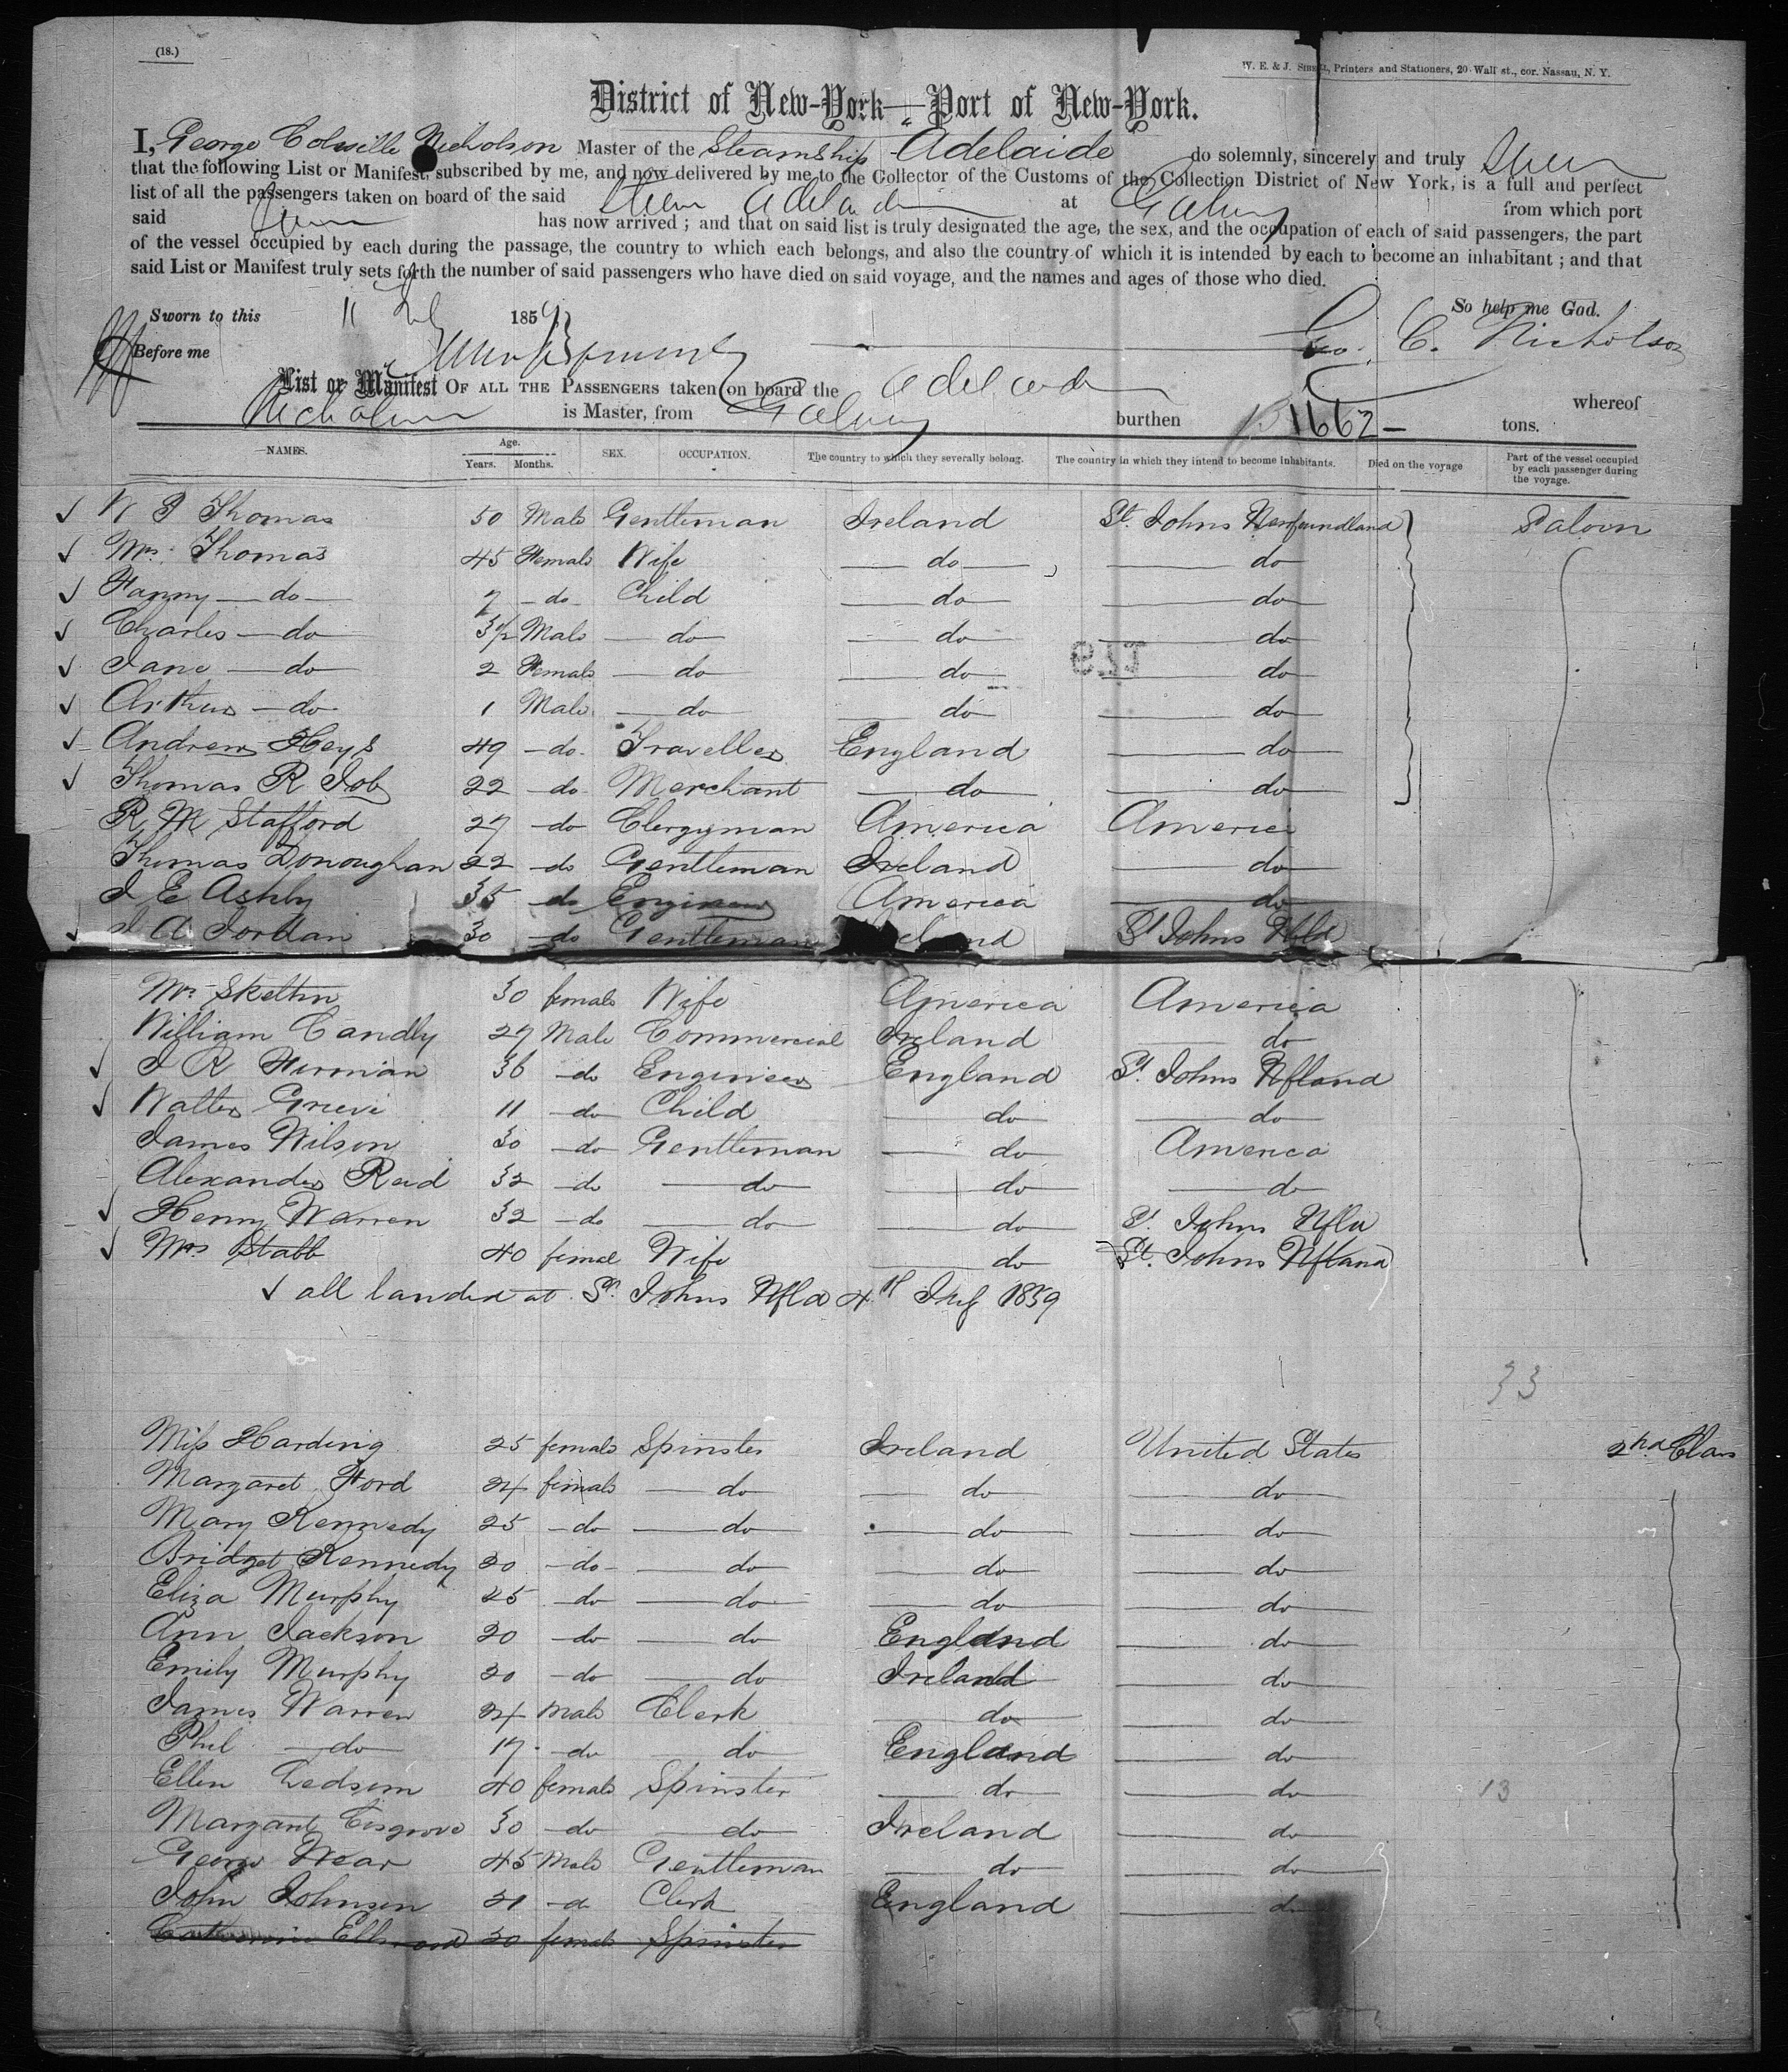 (18.)
W. E. & J. Printers and Stationers, 20 Wall st., cor. Nassau, N. Y.
District of New-York—Port of New-York.
I, George Colville Nicholson Master of the Steamship Adelaide do solemnly, sincerely and truly Swear
that the following List or Manifest, subscribed by me, and now delivered by me to the Collector of the Customs of the Collection District of New York, is a full and perfect
list of all the passengers taken on board of the said Steam Adelaide at Galway from which port
said has now arrived ; and that on said list is truly designated the age, the sex, and the occupation of each of said passengers, the part
of the vessel occupied by each during the passage, the country to which each belongs, and also the country of which it is intended by each to become an inhabitant ; and that
said List or Manifest truly sets forth the number of said passengers who have died on said voyage, and the names and ages of those who died.
So help me God.
Sworn to this 11 July 1859
Before me Geo. C. Nicholson
List or Manifest OF ALL THE PASSENGERS taken on board the Adelaide whereof
Nicholson is Master, from Galway burthen 1662 — tons.
NAMES. Age. Years. Months. SEX. OCCUPATION. The country to which they severally belong. The country in which they intend to become inhabitants. Died on the voyage Part of the vessel occupied by each passenger during the voyage.
✓ W Thomas 50 Male Gentleman Ireland St. Johns Newfoundland Saloon
✓ Mrs. Thomas 45 Female Wife do do
✓ Fanny do 7 do Child do do
✓ Charles do 3½ Male do do do
✓ Jane do 2 Female do do do
✓ Arthur do 1 Male do do do
✓ Andrew Heys 49 do Traveller England do
✓ Thomas R Job 22 do Merchant do do
R M Stafford 27 do Clergyman America America
Thomas Donoughan 22 do Gentleman Ireland do
J E Ashby 35 do Engineer America do
✓ J A Jordan 30 do Gentleman Ireland St Johns Nfld
Mrs Skelton 30 female Wife America America
William Candly 27 Male Commercial Ireland do
✓ J R Firman 36 do Engineer England St. Johns Nfland
✓ Walter Grieve 11 do Child do do
James Wilson 30 do Gentleman do America
Alexander Reid 32 do do do do
✓ Henry Warren 32 do do do St. Johns Nfld
✓ Mrs Stabb 40 female Wife do St. Johns Nfland
✓ all landed at St. Johns Nfld 4th July 1859
33
Miss Harding 25 female Spinster Ireland United States 2nd Class
Margaret Ford 24 female do do do
Mary Kennedy 25 do do do do
Bridget Kennedy 20 do do do do
Eliza Murphy 25 do do do do
Ann Jackson 20 do do England do
Emily Murphy 20 do do Ireland do
James Warren 24 Male Clerk do do
Phil do 17 do do England do
Ellen Ledsom 40 female Spinster do do
Margaret Cosgrove 30 do do Ireland do
George Wear 45 Male Gentleman do do
John Johnson 21 do Clerk England do
Catherine Ellwood 20 female Spinster
13